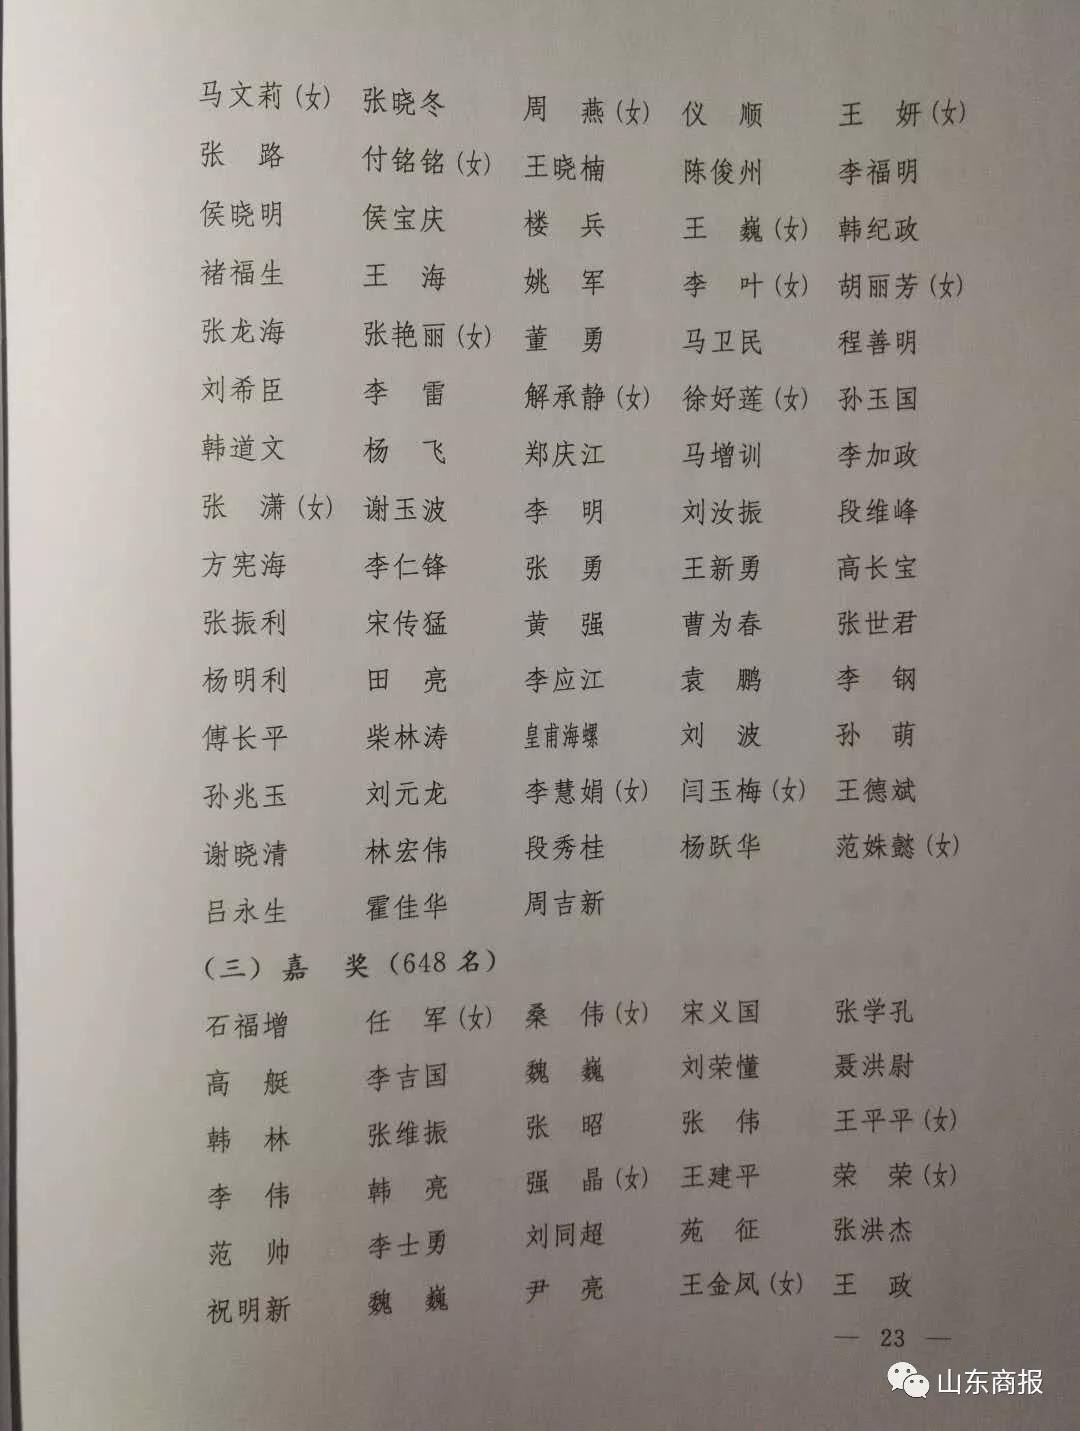 马文莉(女) 张晓冬 周　燕(女) 仪　顺 王　妍(女)
张　路 付铭铭(女) 王晓楠 陈俊州 李福明
侯晓明 侯宝庆 楼　兵 王　巍(女) 韩纪政
褚福生 王　海 姚　军 李　叶(女) 胡丽芳(女)
张龙海 张艳丽(女) 董　勇 马卫民 程善明
刘希臣 李　雷 解承静(女) 徐好莲(女) 孙玉国
韩道文 杨　飞 郑庆江 马增训 李加政
张　潇(女) 谢玉波 李　明 刘汝振 段维峰
方宪海 李仁锋 张　勇 王新勇 高长宝
张振利 宋传猛 黄　强 曹为春 张世君
杨明利 田　亮 李应江 袁　鹏 李　钢
傅长平 柴林涛 皇甫海螺 刘　波 孙　萌
孙兆玉 刘元龙 李慧娟(女) 闫玉梅(女) 王德斌
谢晓清 林宏伟 段秀桂 杨跃华 范姝懿(女)
吕永生 霍佳华 周吉新
(三) 嘉　奖(648名)
石福增 任　军(女) 桑　伟(女) 宋义国 张学孔
高　艇 李吉国 魏　巍 刘荣懂 聂洪尉
韩　林 张维振 张　昭 张　伟 王平平(女)
李　伟 韩　亮 强　晶(女) 王建平 荣　荣(女)
范　帅 李士勇 刘同超 苑　征 张洪杰
祝明新 魏　巍 尹　亮 王金凤(女) 王　政
— 23 —
山东商报